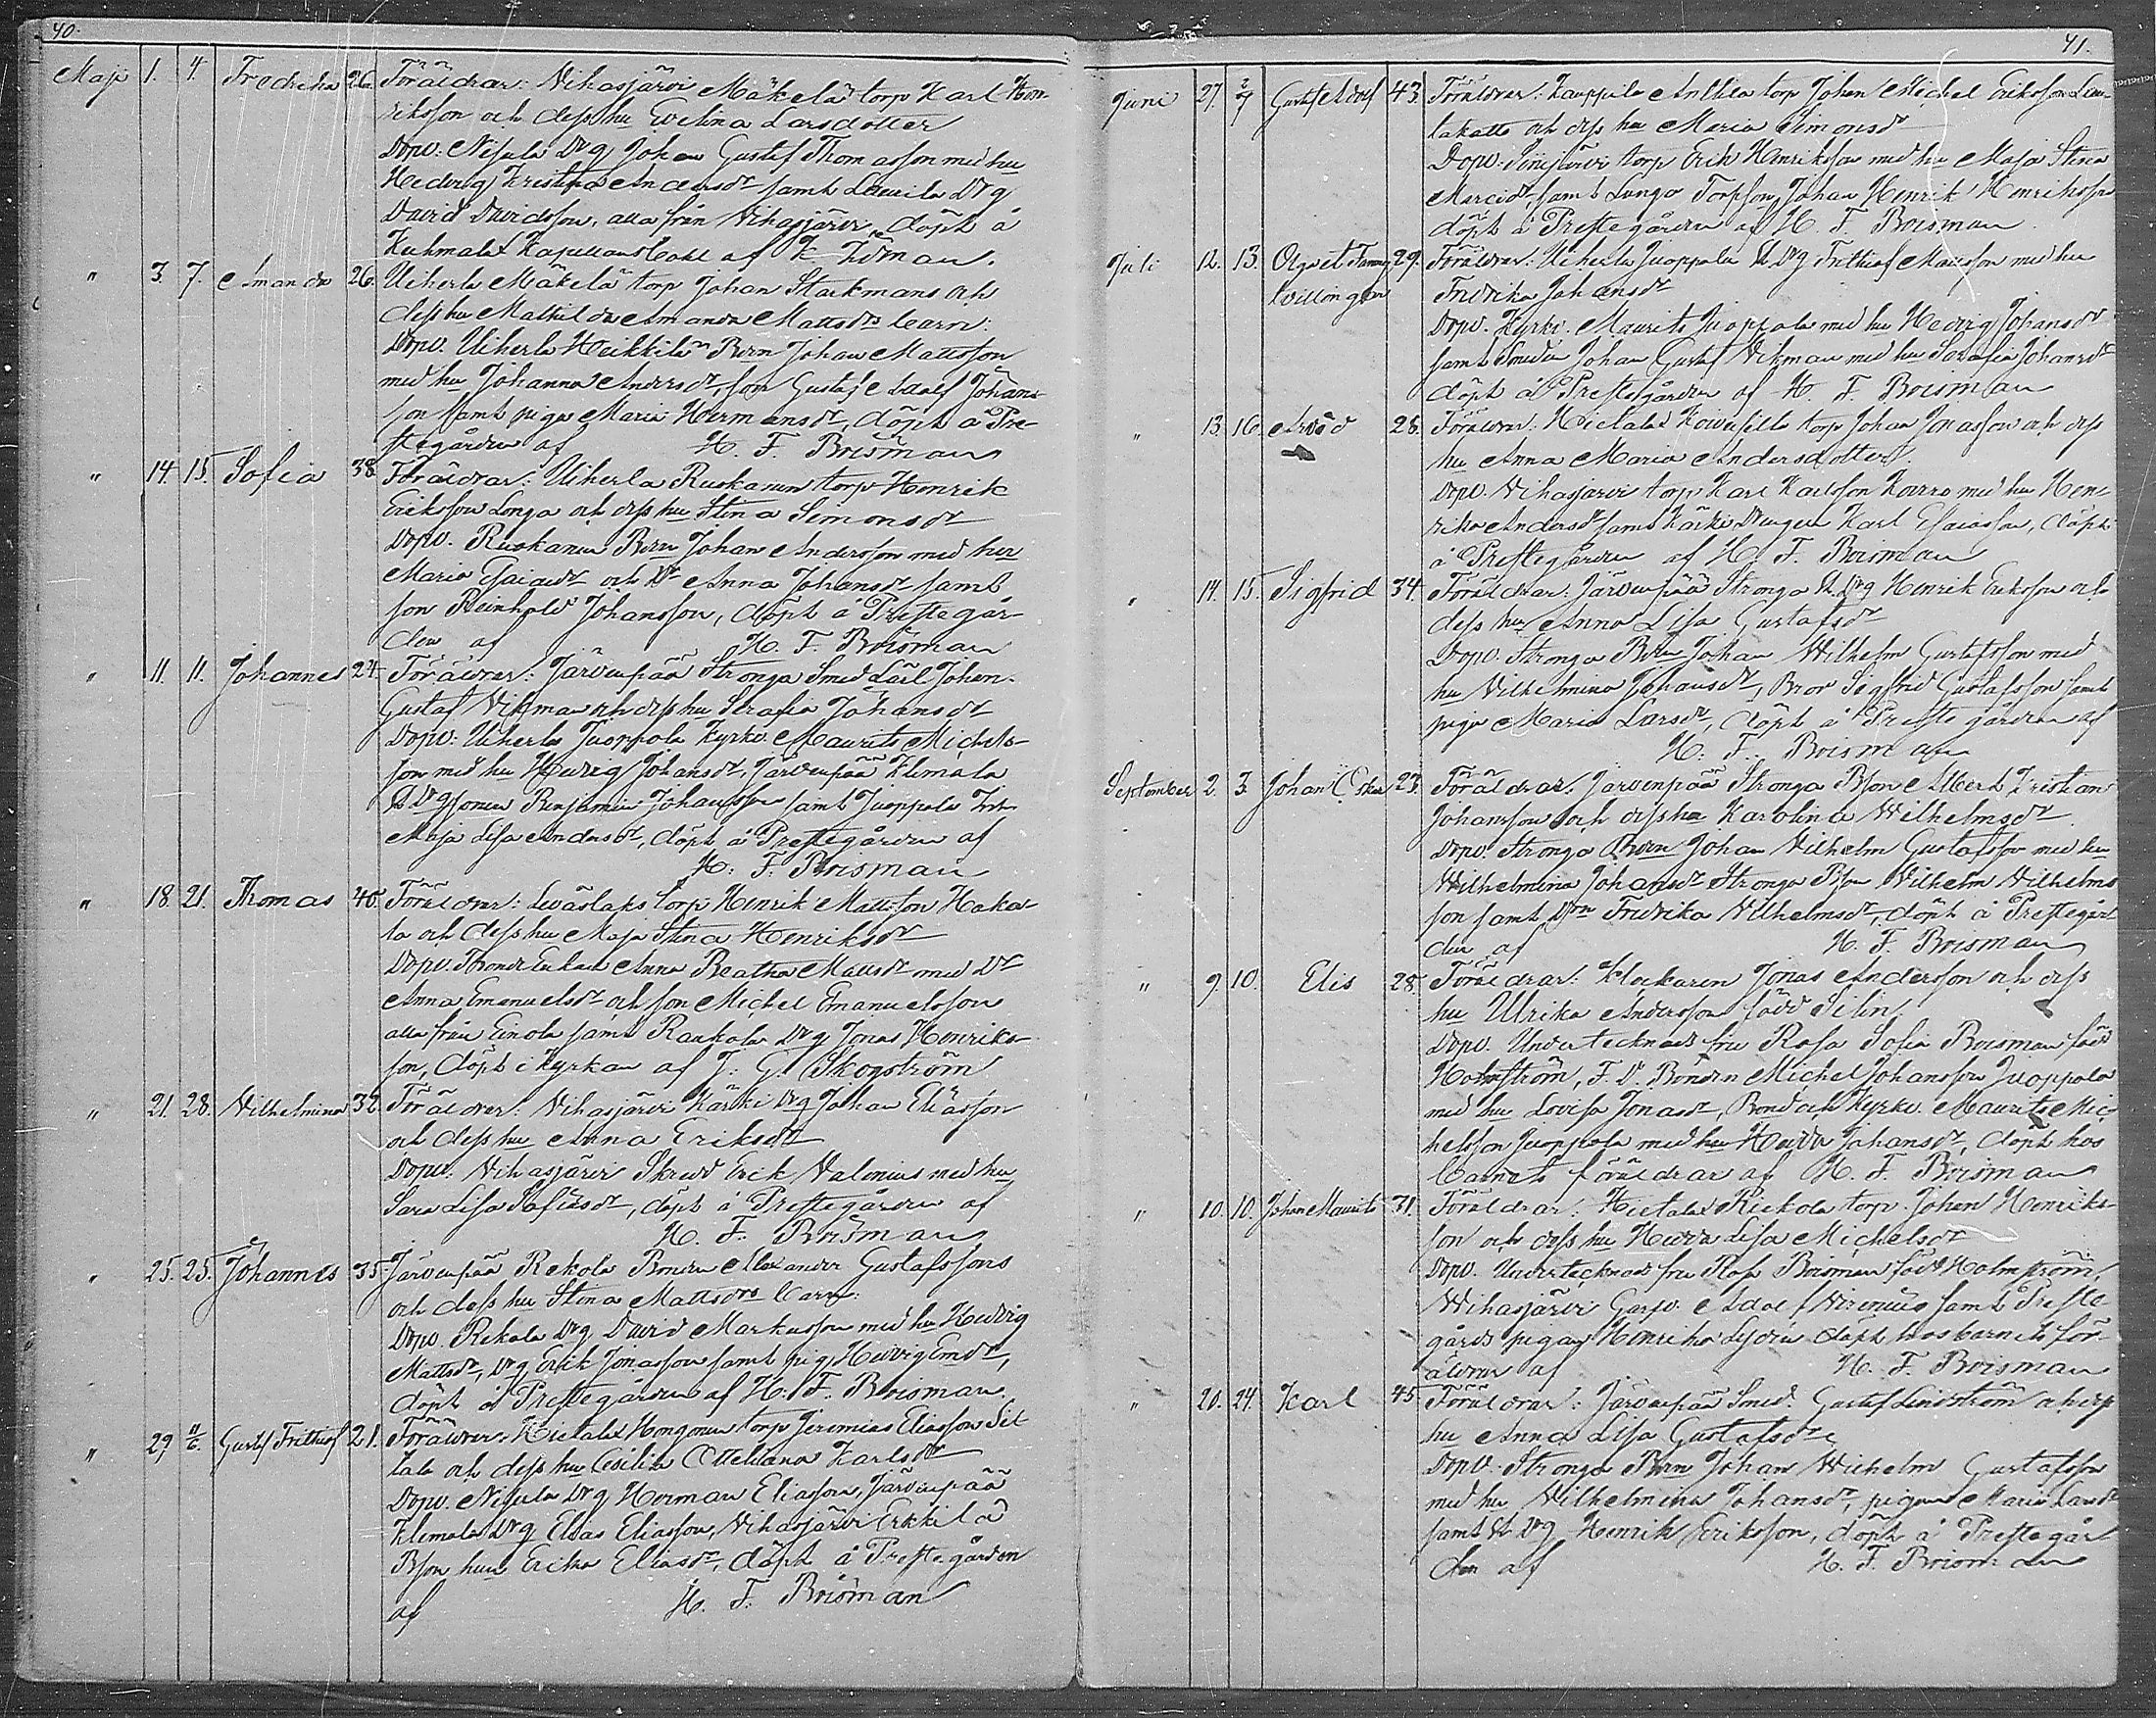 40.
Maji 1. 4. Fredrika 26. Föräldrar: Vihasjärvi Mäkelä torp Karl Hen-
riksson och dess hu Evelina Larsdotter
Dopv: Nisula Drg Johan Gustaf Thomasson med hu
Hedvig Kristina Andersdr samt Laurila Drg
David Davidsson, alla från Vihasjärvi, döpt å
Kuhmalax Kapellansbohl af K. Ödman.
" 3. 7. Amanda 26. Uiherla Mäkelä torp Johan Starkmans och
dess hu Mathilda Amanda Mattsdrs barn:
Dopv. Uiherla Heikkilä Bon Johan Mattsson
med hu Johanna Andersdr, son Gustaf Adolf Johans-
son samt piga Maria Hermansdr, döpt å Pre-
stegården af H. F. Boisman
" 14. 15. Sofia 38. Föräldrar: Uiherla Ruskanen torp Henrik
Eriksson Longa och dess hu Stina Simonsdr
Dopv. Ruskanen Bon Johan Andersson med hu
Maria Esaiasdr och Dr Anna Johansdr samt
son Reinhold Johansson, döpt å Prestegår-
den af H. F. Boisman
" 11. 11. Johannes 24. Föräldrar: Järvenpää Stronga Smed Lärl Johan
Gustaf Vikman och dess hu Serafia Johansdr
Dopv: Uiherla Juoppola Kyrkv. Maurits Michels-
son med hu Hedvig Johansdr, Järvenpää Klemala
Benjamin Johansson samt Juoppola
Maja Lisa Andersdr, döpt å Prestegården af
H. F. Boisman
" 18. 21. Thomas 40. Föräldrar: torp Henrik Mattsson Haka-
la och dess hu Maja Stina Henriksdr
Dopv. Bonde Enkan Anna Beatha Mattsdr med Dr
Anna Emanuelsdr och son Michel Emanuelsson
alla från Einola samt Raukola Drg Jonas Henriks-
son, döpt i Kyrkan af J. G. Skogström
" 21. 28. Vilhelmina 32. Föräldrar: Vihasjärvi Kärki Drg Johan Eliasson
och dess hu Anna Eriksdr
Dopv. Vihasjärvi Skredd Erick Valenius med hu
Sara Lisa dr, döpt å Prestegården af
H. F. Boisman
" 25. 25. Johannes 35. Järvenpää Rekola Bonden Alexander Gustafssons
och dess hu Stina Mattsdrs barn:
Dopv. Rekola Drg David Markusson med hu Hedvig
Mattsdr, Drg Erik Jonasson samt pig Hedvig Emdr,
döpt å Prestegården af H. F. Boisman
" 29 11/6. Gustaf Frithiof 21. Föräldrar: Hietalax Hongonen torp Jeremias Eliasson Sil-
tala och dess hu Cecilia Ottiliana Karlsdr
Dopv. Nisula Drg Herman Eliasson, Järvenpää
Klemala Drg Elias Eliasson, Vihasjärvi Erkkilä
Bson hu Erika Eliasdr, döpt å Prestegården
af H. F. Boisman
41.
Juni 27. 2/7 Gustaf Adolf 43. Föräldrar: Kauppila Anttila torp Johan Michel Eriksson Lau-
lakatto och dess hu Maria Simonsdr
Dopv. torp Erik Henriksson med hu Maja Stina
samt Longa Torpson Johan Henrik Henriksson
döpt å Prestegården af H. F. Boisman
Juli 12. 13. Olga et Fanny 29. Föräldrar. Uiherla Juoppola Drg Frithiof Mausson med hu
tvillingar Fredrika Johansdr
Dopv. Kyrkv. Maurits Juoppola med hu Hedvig Johansdr
samt Smeden Johan Gustaf Vikman med hu Serafia Johansdr
döpt å Prestegården af H. F. Boisman
" 13. 16. Arvid 28. Föräldrar: Hietalax torp Johan Jonasson och dess
hu Anna Maria Andersdotter.
Dopv. Vihasjärvi torp Karl Karlsson med hu Hen-
rika Andersdr samt Kärki Drengen Karl Esaiasson, döpt
å Prestegården af H. F. Boisman
" 14. 15. Sigfrid 34. Föräldrar: Järvenpää Stronga Drg Henrik Eriksson och
dess hu Anna Lisa Gustafsdr
Dopv. Stronga Bon Johan Wilhelm Gustafsson med
hu Vilhelmina Johansdr, Bror Sigfrid Gustafsson samt
piga Maria Larsdr, döpt å Prestegården af
H. F. Boisman
September 2. 3. Johan Oskar 23. Föräldrar: Järvenpää Stronga Bson Albert Kristian
Johansson och dess hu Karolina Wilhelmsdr
Dopv. Stronga Bon Johan Vilhelm Gustafsson med hu
Wilhelmina Johansdr Stronga Bson Wilhelm Wilhelms-
son samt Dtrn Fredrika Wilhelmsdr, döpt å Prestegår-
den af H. F. Boisman
" 9. 10. Elis 28. Föräldrar: Klockaren Jonas Andersson och dess
hu Ulrika Andersson född Silin.
Dopv. Undertecknads fru Rosa Sofia Boisman född
Holmström, F. D. Bonden Michel Johansson Juoppola
med hu Lovisa Jonasdr, Bond och Kyrkv. Maurits Mic-
helsson Juoppola med hu Hedda Johansdr, döpt hos
barnets föräldrar af H. F. Boisman
" 10. 10. Johan Maurits 31. Föräldrar: Hietalax Riekola torp. Johan Henriks-
son och dess hu Hedda Lisa Michelsdr
Dopv. Undertecknads fru Rosa Boisman född Holmström,
Wihasjärvi Garfv. Adolf Wirenius samt Preste-
gårds pigan Henrika Lydia döpt hos barnets för-
äldrar af H. F. Boisman
" 20. 24. Karl 45. Föräldrar: Järvenpää Smed. Gustaf Lindström och dess
hu Anna Lisa Gustafsdr
Dopv. Stronga Bon Johan Wilhelm Gustafsson
med hu Vilhelmina Johansdr, pigan Maria Larsdr
samt Drg Henrik Eriksson, döpt å Prestegår-
den af H. F. Boisman